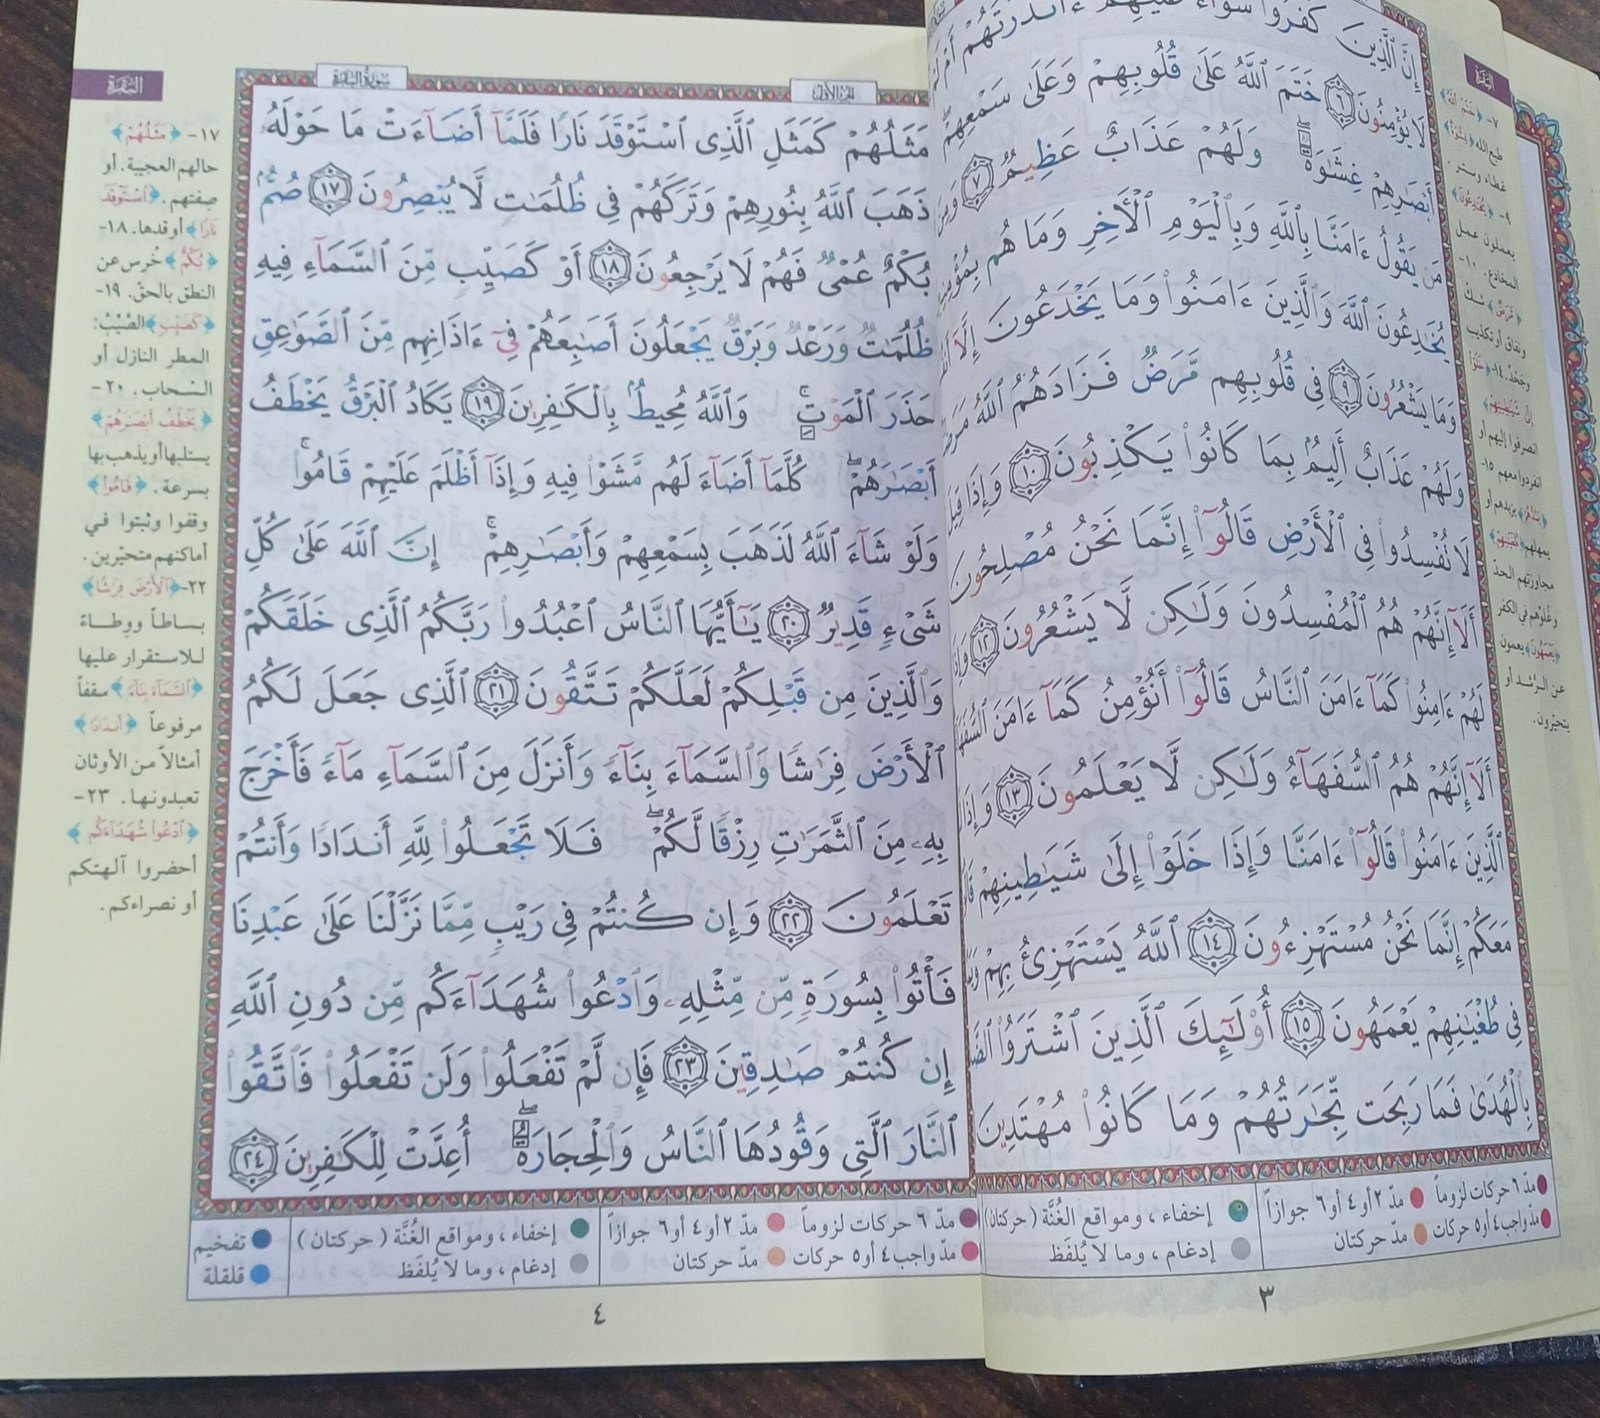 البقرة
إِنَّ ٱلَّذِينَ كَفَرُوا۟ سَوَآءٌ عَلَيْهِمْ ءَأَنذَرْتَهُمْ أَمْ لَمْ
لَا يُؤْمِنُونَ ٦ خَتَمَ ٱللَّهُ عَلَىٰ قُلُوبِهِمْ وَعَلَىٰ سَمْعِهِمْ ۖ
أَبْصَـٰرِهِمْ غِشَـٰوَةٌ ۖ وَلَهُمْ عَذَابٌ عَظِيمٌ ٧ وَمِنَ
مَن يَقُولُ ءَامَنَّا بِٱللَّهِ وَبِٱلْيَوْمِ ٱلْأَخِرِ وَمَا هُم بِمُؤْمِنِينَ
يُخَـٰدِعُونَ ٱللَّهَ وَٱلَّذِينَ ءَامَنُوا۟ وَمَا يَخْدَعُونَ إِلَّآ
وَمَا يَشْعُرُونَ ٩ فِى قُلُوبِهِم مَّرَضٌ فَزَادَهُمُ ٱللَّهُ مَرَضًا
وَلَهُمْ عَذَابٌ أَلِيمٌۢ بِمَا كَانُوا۟ يَكْذِبُونَ ١٠ وَإِذَا قِيلَ
لَا تُفْسِدُوا۟ فِى ٱلْأَرْضِ قَالُوٓا۟ إِنَّمَا نَحْنُ مُصْلِحُونَ
أَلَآ إِنَّهُمْ هُمُ ٱلْمُفْسِدُونَ وَلَـٰكِن لَّا يَشْعُرُونَ ١٢ وَإِذَا
لَهُمْ ءَامِنُوا۟ كَمَآ ءَامَنَ ٱلنَّاسُ قَالُوٓا۟ أَنُؤْمِنُ كَمَآ ءَامَنَ ٱلسُّفَهَآءُ
أَلَآ إِنَّهُمْ هُمُ ٱلسُّفَهَآءُ وَلَـٰكِن لَّا يَعْلَمُونَ ١٣ وَإِذَا
ٱلَّذِينَ ءَامَنُوا۟ قَالُوٓا۟ ءَامَنَّا وَإِذَا خَلَوْا۟ إِلَىٰ شَيَـٰطِينِهِمْ
مَعَكُمْ إِنَّمَا نَحْنُ مُسْتَهْزِءُونَ ١٤ ٱللَّهُ يَسْتَهْزِئُ بِهِمْ
فِى طُغْيَـٰنِهِمْ يَعْمَهُونَ ١٥ أُو۟لَـٰٓئِكَ ٱلَّذِينَ ٱشْتَرَوُا۟
بِٱلْهُدَىٰ فَمَا رَبِحَت تِّجَـٰرَتُهُمْ وَمَا كَانُوا۟ مُهْتَدِينَ
٧- ﴿خَتَمَ ٱللَّهُ﴾
طبع الله ﴿غِشَـٰوَةٌ﴾
غطاء وستر.
٩- ﴿يُخَـٰدِعُونَ﴾
يعملون عمل
المخادع. ١٠-
﴿مَّرَضٌ﴾ شك
ونفاق أو تكذيب
وجحد. ١٤- ﴿خَلَوْا۟
إِلَىٰ شَيَـٰطِينِهِمْ﴾
انصرفوا إليهم أو
انفردوا معهم ١٥-
﴿يَمُدُّهُمْ﴾ يزيدهم أو
يمهلهم ﴿طُغْيَـٰنِهِمْ﴾
مجاوزتهم الحد
وغلوهم في الكفر
﴿يَعْمَهُونَ﴾ يعمون
عن الرشد أو
يتحيّرون.
مدّ ٦ حركات لزوماً مدّ ٢ أو ٤ أو ٦ جوازاً إخفاء، ومواقع الغُنَّة (حركتان)
مدّ واجب ٤ أو ٥ حركات مدّ حركتان إدغام، وما لا يُلفَظ
٣
الجزء الأول سورة البقرة البقرة
مَثَلُهُمْ كَمَثَلِ ٱلَّذِى ٱسْتَوْقَدَ نَارًا فَلَمَّآ أَضَآءَتْ مَا حَوْلَهُۥ
ذَهَبَ ٱللَّهُ بِنُورِهِمْ وَتَرَكَهُمْ فِى ظُلُمَـٰتٍ لَّا يُبْصِرُونَ ١٧ صُمٌّۢ
بُكْمٌ عُمْىٌ فَهُمْ لَا يَرْجِعُونَ ١٨ أَوْ كَصَيِّبٍ مِّنَ ٱلسَّمَآءِ فِيهِ
ظُلُمَـٰتٌ وَرَعْدٌ وَبَرْقٌ يَجْعَلُونَ أَصَـٰبِعَهُمْ فِىٓ ءَاذَانِهِم مِّنَ ٱلصَّوَٰعِقِ
حَذَرَ ٱلْمَوْتِ ۚ وَٱللَّهُ مُحِيطٌۢ بِٱلْكَـٰفِرِينَ ١٩ يَكَادُ ٱلْبَرْقُ يَخْطَفُ
أَبْصَـٰرَهُمْ ۖ كُلَّمَآ أَضَآءَ لَهُم مَّشَوْا۟ فِيهِ وَإِذَآ أَظْلَمَ عَلَيْهِمْ قَامُوا۟ ۚ
وَلَوْ شَآءَ ٱللَّهُ لَذَهَبَ بِسَمْعِهِمْ وَأَبْصَـٰرِهِمْ ۚ إِنَّ ٱللَّهَ عَلَىٰ كُلِّ
شَىْءٍ قَدِيرٌ ٢٠ يَـٰٓأَيُّهَا ٱلنَّاسُ ٱعْبُدُوا۟ رَبَّكُمُ ٱلَّذِى خَلَقَكُمْ
وَٱلَّذِينَ مِن قَبْلِكُمْ لَعَلَّكُمْ تَتَّقُونَ ٢١ ٱلَّذِى جَعَلَ لَكُمُ
ٱلْأَرْضَ فِرَٰشًا وَٱلسَّمَآءَ بِنَآءً وَأَنزَلَ مِنَ ٱلسَّمَآءِ مَآءً فَأَخْرَجَ
بِهِۦ مِنَ ٱلثَّمَرَٰتِ رِزْقًا لَّكُمْ ۖ فَلَا تَجْعَلُوا۟ لِلَّهِ أَندَادًا وَأَنتُمْ
تَعْلَمُونَ ٢٢ وَإِن كُنتُمْ فِى رَيْبٍ مِّمَّا نَزَّلْنَا عَلَىٰ عَبْدِنَا
فَأْتُوا۟ بِسُورَةٍ مِّن مِّثْلِهِۦ وَٱدْعُوا۟ شُهَدَآءَكُم مِّن دُونِ ٱللَّهِ
إِن كُنتُمْ صَـٰدِقِينَ ٢٣ فَإِن لَّمْ تَفْعَلُوا۟ وَلَن تَفْعَلُوا۟ فَٱتَّقُوا۟
ٱلنَّارَ ٱلَّتِى وَقُودُهَا ٱلنَّاسُ وَٱلْحِجَارَةُ ۖ أُعِدَّتْ لِلْكَـٰفِرِينَ ٢٤
١٧- ﴿مَثَلُهُمْ﴾
حالهم العجيبة. أو
صِفتهم. ﴿ٱسْتَوْقَدَ
نَارًا﴾ أوقدها. ١٨-
﴿بُكْمٌ﴾ خُرس عن
النطق بالحقّ. ١٩-
﴿كَصَيِّبٍ﴾ الصَّيِّبُ:
المطر النازل أو
السّحاب. ٢٠-
﴿يَخْطَفُ أَبْصَـٰرَهُمْ﴾
يستلبها أو يذهب بها
بسرعة. ﴿قَامُوا۟﴾
وقفوا وثبتوا في
أماكنهم متحيّرين.
٢٢- ﴿ٱلْأَرْضَ فِرَٰشًا﴾
بساطاً ووِطاءً
للاستقرار عليها
﴿ٱلسَّمَآءَ بِنَآءً﴾ سقفاً
مرفوعاً ﴿أَندَادًا﴾
أمثالاً من الأوثان
تعبدونها. ٢٣-
﴿ٱدْعُوا۟ شُهَدَآءَكُم﴾
أحضروا آلهتكم
أو نصراءكم.
مدّ ٦ حركات لزوماً مدّ ٢ أو ٤ أو ٦ جوازاً إخفاء، ومواقع الغُنَّة (حركتان) تفخيم
مدّ واجب ٤ أو ٥ حركات مدّ حركتان إدغام، وما لا يُلفَظ قلقلة
٤